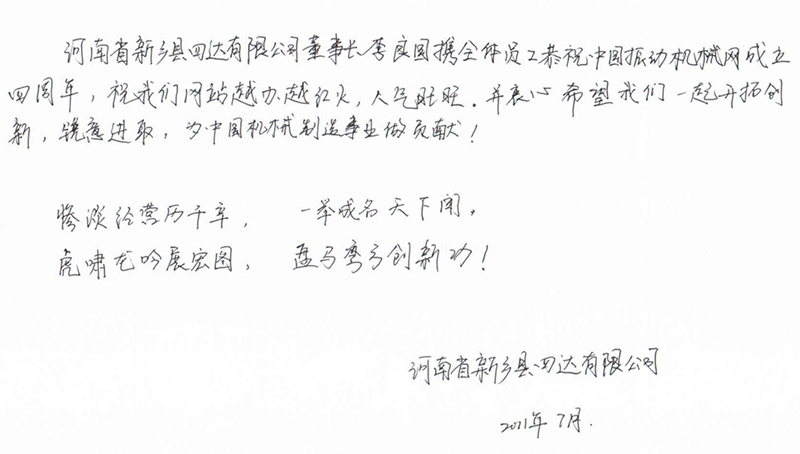 河南省新乡县四达有限公司董事长李良国携全体员工恭祝中国振动机械网成立
四周年，祝我们网站越办越红火，人气旺旺．并衷心希望我们一起开拓创
新，锐意进取，为中国机械制造事业做贡献！
惨淡经营历千辛， 一举成名天下闻，
虎啸龙吟展宏图， 盘马弯弓创新功！
河南省新乡县四达有限公司
2011年7月．